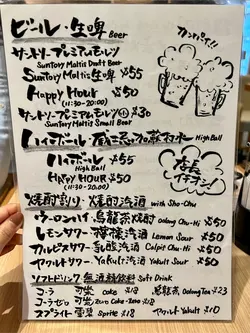 ビール・生啤 Beer
カンパイ!!
サントリープレミアムモルツ
Suntory Malts Draft Beer
Suntory Malts 生啤 ¥55
Happy Hour ¥50
(11:30-20:00)
サントリープレミアムモルツ ¥30
Suntory Malts Small Beer
ハイボール・威士忌
HighBall
ハイボール ¥55
High Ball
Happy Hour ¥50
(11:30-20:00)
店長
イチラン!
焼酎割り・燒酎汽酒 with Sho-Chu
ウーロンハイ 烏龍茶燒酎 Oolong Chu-Hi ¥50
レモンサワー 檸檬汽酒 Lemon Sour ¥50
カルピスサワー 乳酸汽酒 Calpis Chu-Hi ¥50
ヤクルトサワー Yakult汽酒 Yakult Sour ¥50
ソフトドリンク 無酒精飲料 Soft Drink
コーラ 可樂 Coke ¥18
烏龍茶 Oolong Tea ¥23
コーラゼロ 可樂Zero Coke-Zero ¥18
スプライト 雪碧 Sprite ¥18
ヤクルト Yakult ¥10